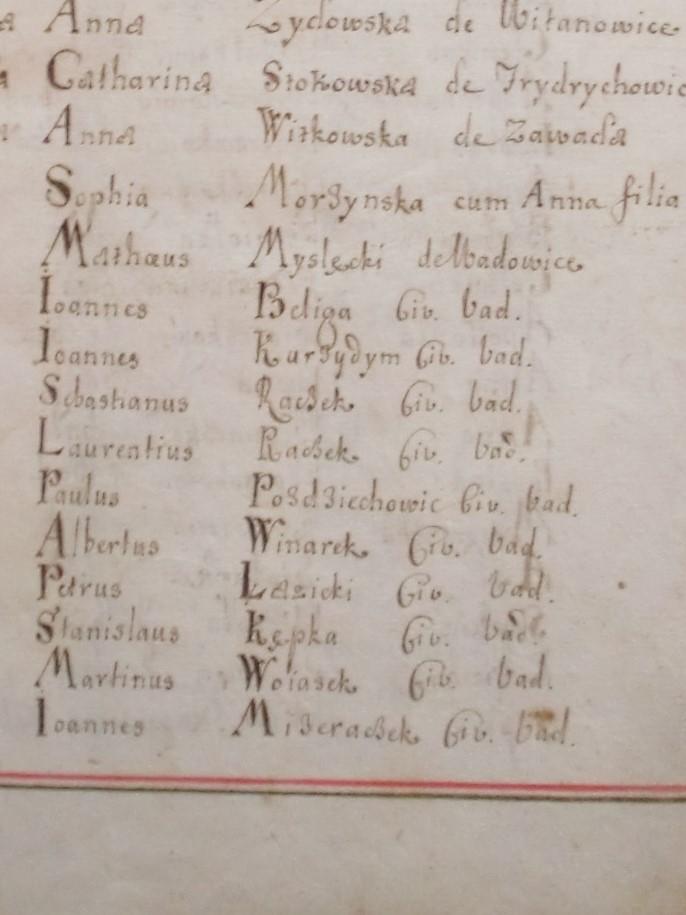 Anna Zydowska de Witanowice
Catharina Stokowska de Frydrychowic
Anna Witkowska de Zawada
Sophia Morzynska cum Anna filia
Mathæus Myslęcki de Wadowice
Ioannes Beliga Civ. Vad.
Ioannes Kurzydym Civ. Vad.
Sebastianus Raczek Civ. Vad.
Laurentius Raczek Civ. Vad.
Paulus Pozdziechowic Civ. Vad.
Albertus Winarek Civ. Vad.
Petrus Łazicki Civ. Vad.
Stanislaus Kępka Civ. Vad.
Martinus Woiasek Civ. Vad.
Ioannes Mizeraczek Civ. Vad.